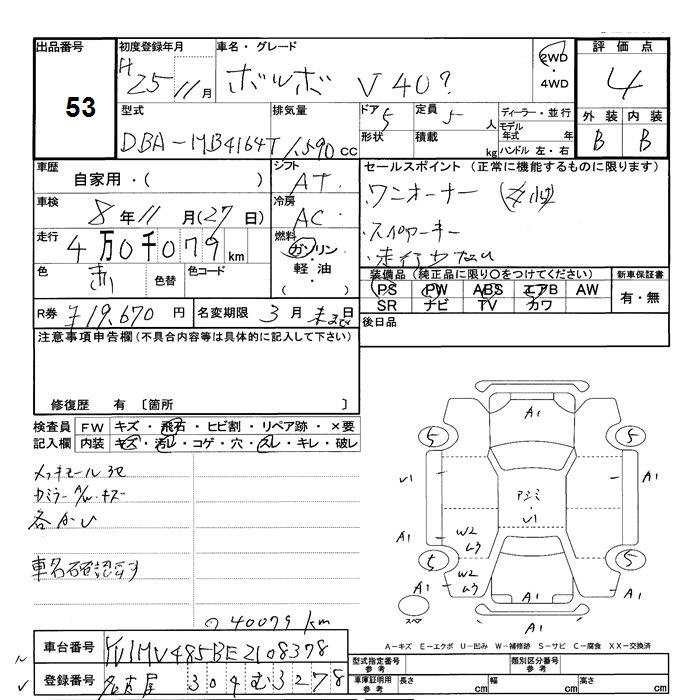 出品番号 初度登録年月 車名・グレード 評価点
53
H25 11月 ボルボ V40? 2WD 4WD 4
型式 排気量 ドア 定員 ディーラー・並行 外装 内装
DBA-MB4164T 1,590 cc 5 5 人 モデル年式 年 B B
形状 積載 kg ハンドル 左・右
車歴 自家用・( ) シフト AT セールスポイント (正常に機能するものに限ります)
車検 8年11月(27日) 冷房 AC ワンオーナー (女性)
走行 4万0千079km 燃料 ガソリン・軽油・( )
スペアキー
走行少ない
色 赤 色替 色コード
装備品 (純正品に限り○をつけてください) 新車保証書
PS PW ABS エアB AW 有・無
SR ナビ TV カワ
R券 ¥19,670円 名変期限 3月末日 後日品
注意事項申告欄(不具合内容等は具体的に記入して下さい)
修復歴 有 〔箇所 〕
検査員 FW キズ・飛石・ヒビ割・リペア跡・×要
記入欄 内装 キズ・汚レ・コゲ・穴・スレ・キレ・破レ
A1
5 5
メッキモール
V1 A1
カミラーA/W キズ
V1
各かい
A1 W2 A1
車名確認要す
5 5
A1 W2 A1
スペア
A1
40079 km
A-キズ E-エクボ U-凹み W-補修跡 S-サビ C-腐食 XX-交換済
車台番号 YV1MV485BE2108378
型式指定番号 参考 類別区分番号 参考
登録番号 名古屋 304 む 3278
車庫証明用 参考 長さ cm 幅 cm 高さ cm